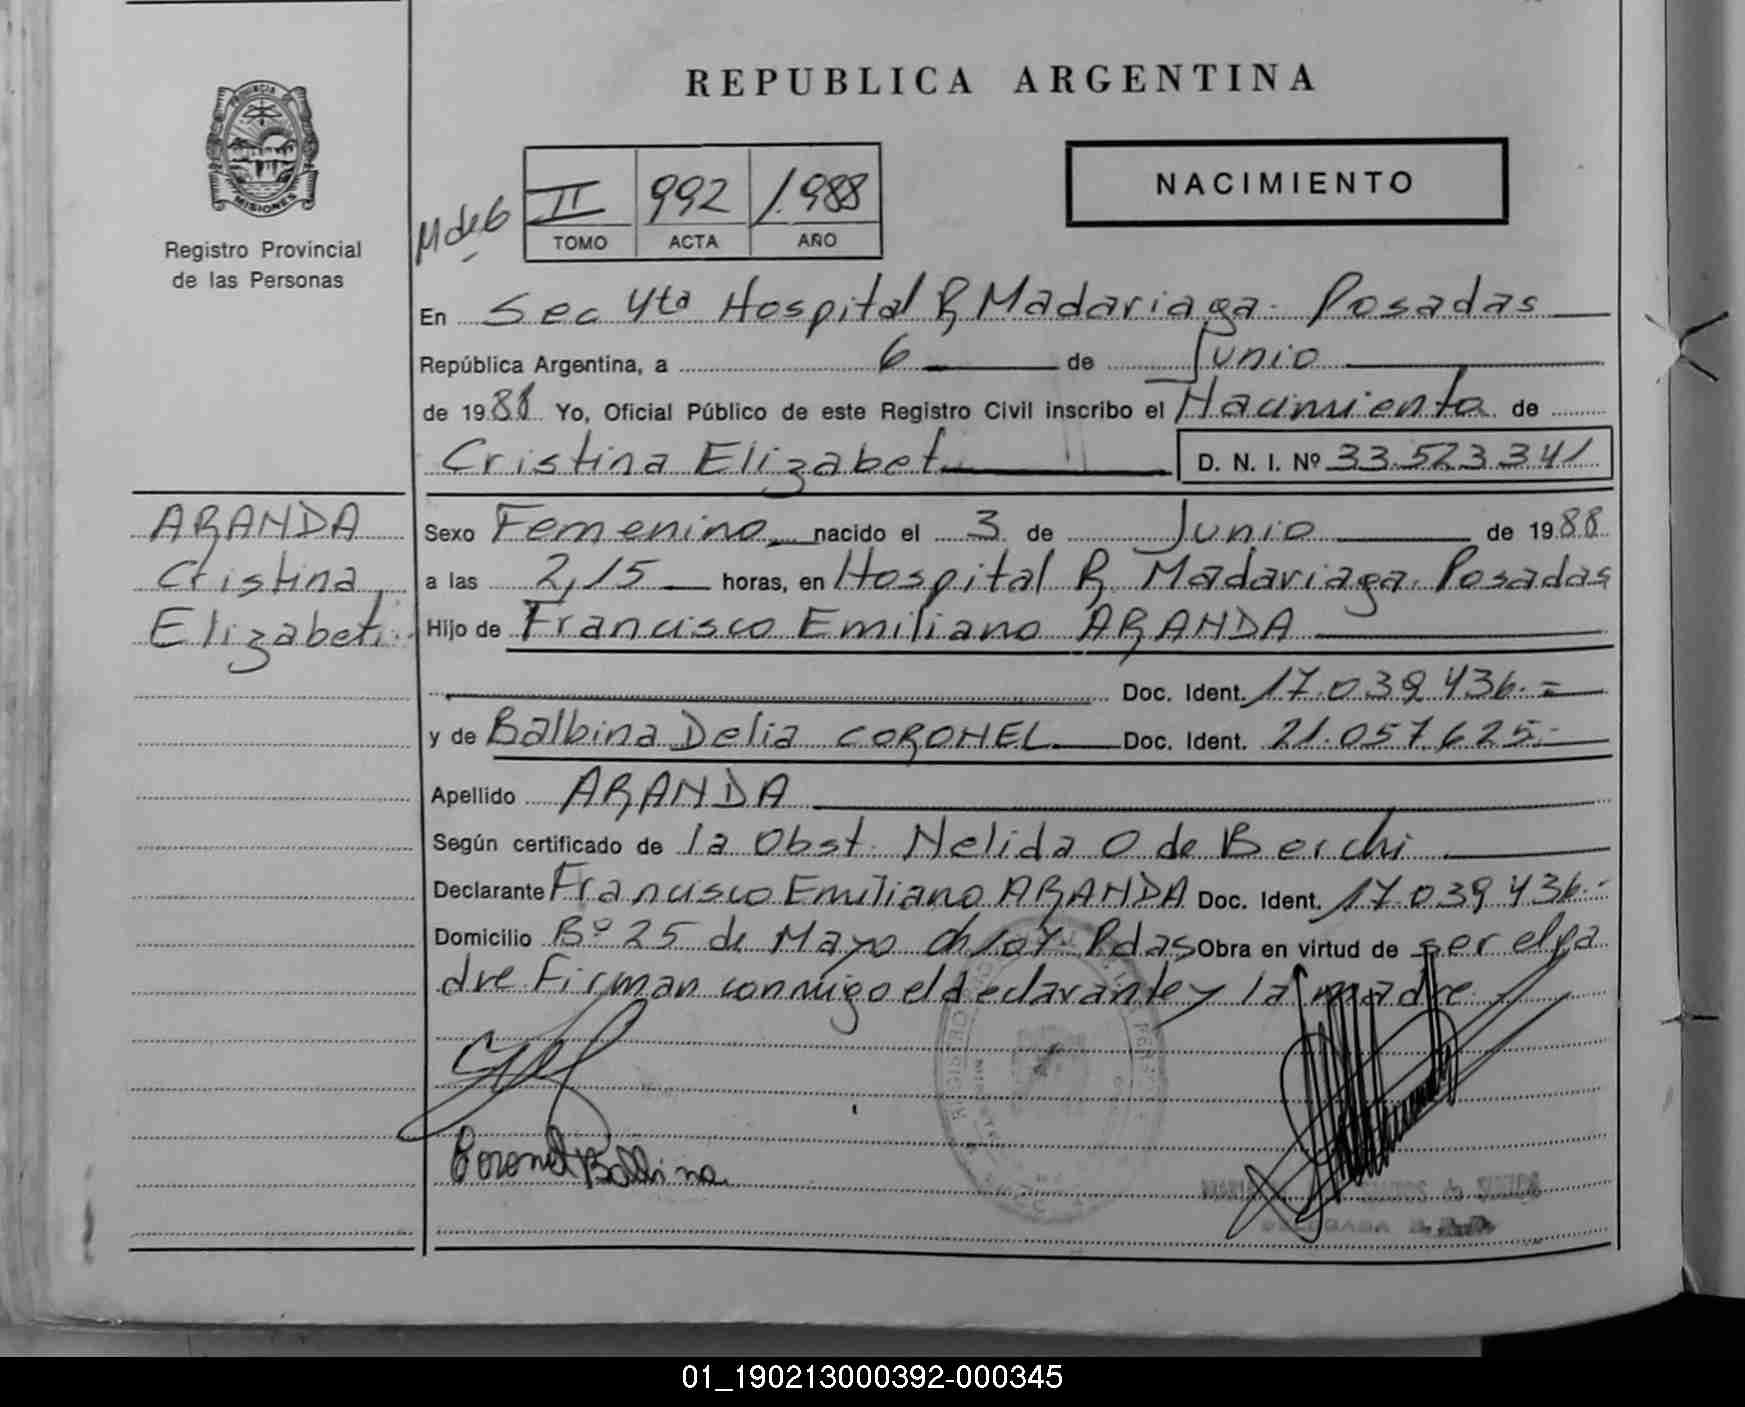 REPUBLICA ARGENTINA
PROVINCIA DE
MISIONES
Registro Provincial
de las Personas
NACIMIENTO
II 992 1.988
TOMO ACTA AÑO
En Sec 4ta Hospital R Madariaga. Posadas
República Argentina, a 6 de Junio
de 1988 Yo, Oficial Público de este Registro Civil inscribo el Nacimiento de
Cristina Elizabet D. N. I. Nº 33.523.341
ARANDA
Cristina
Elizabet
Sexo Femenino nacido el 3 de Junio de 1988
a las 2,15 horas, en Hospital R. Madariaga. Posadas
Hijo de Francisco Emiliano ARANDA
Doc. Ident. 17.039.436.=
y de Balbina Delia CORONEL Doc. Ident. 21.057.625.-
Apellido ARANDA
Según certificado de la Obst. Nelida O de Berchi
Declarante Francisco Emiliano ARANDA Doc. Ident. 17.039.436.-
Domicilio Bº 25 de Mayo Pdas Obra en virtud de ser el pa
dre Firman conmigo el declarante y la madre
Coronel Balbina
01_190213000392-000345